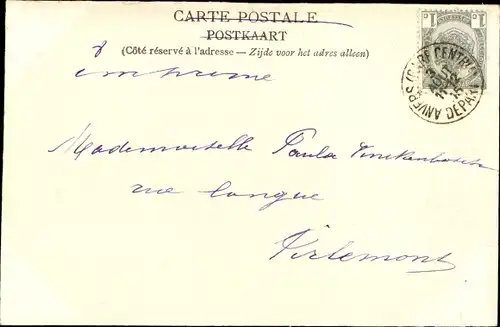 CARTE POSTALE
POSTKAART
(Côté réservé à l'adresse — Zijde voor het adres alleen)
imprimé
Mademoiselle Paula
rue longue
Tirlemont
1 1
ANVERS (GARE CENTRALE) DEPART